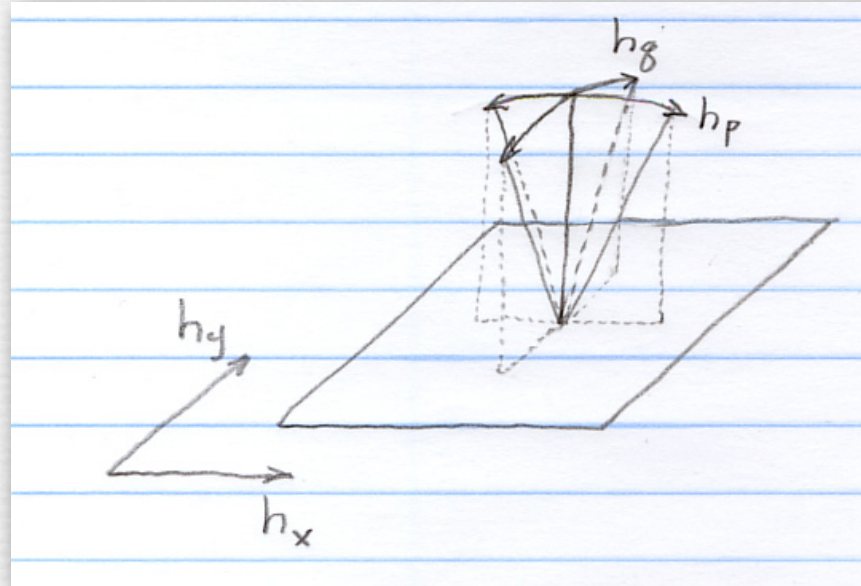 h_q
h_p
h_y
h_x